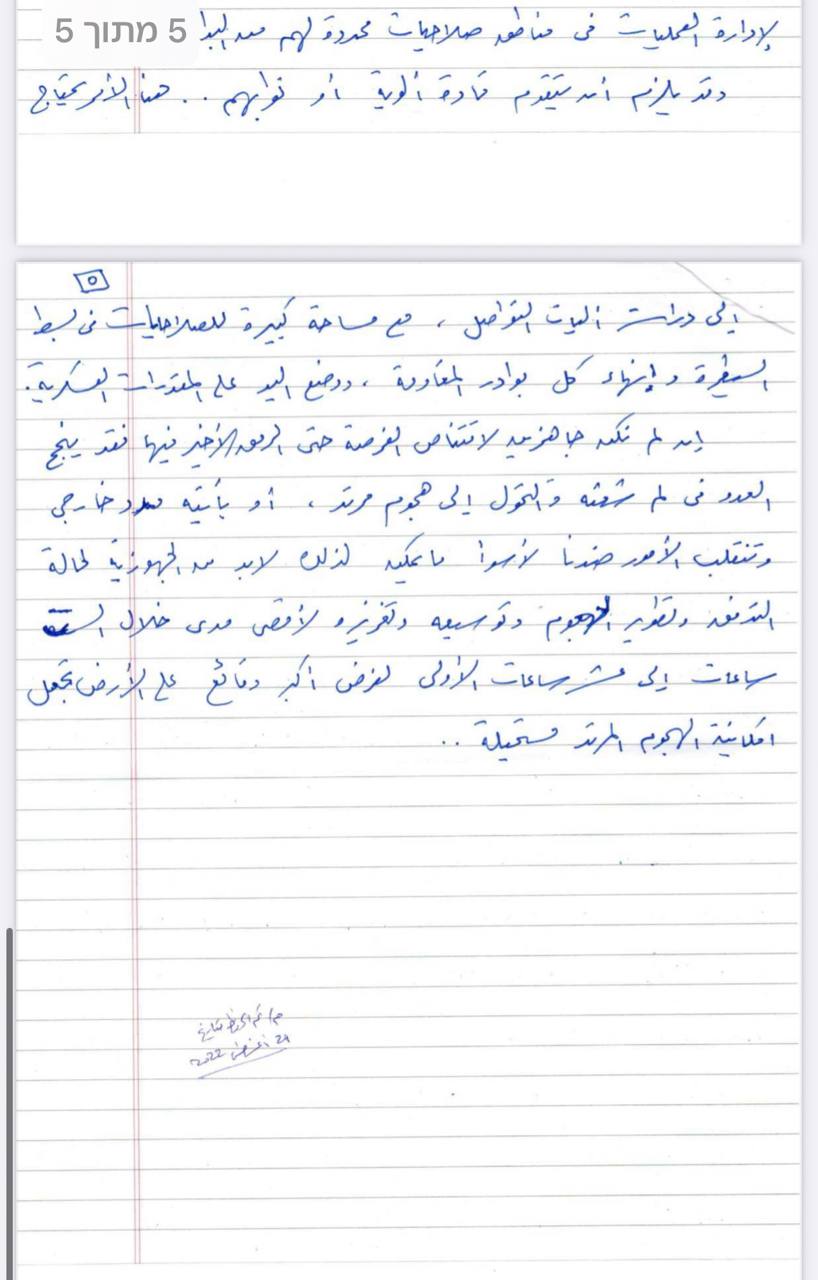 5 מתוך 5
لإدارة العمليات في مناطق صلاحيات محددة لهم منذ البدا
وقد يلزم أن يتقدم قادة ألوية أو نوابهم .. هنا الأمر يحتاج
٥
إلى دراسة آليات التواصل ، مع مساحة كبيرة للصلاحيات في بسط
السيطرة وإنهاء كل بوادر المقاومة ، ووضع اليد على المقدرات العسكرية.
إن لم نكن جاهزين لاقتناص الفرصة حتى الرمق الأخير فيها فقد ينجح
العدو في لم شعثه والتحول إلى هجوم مرتد ، أو يأتيه مدد خارجي
وتنقلب الأمور ضدنا لأسوأ ما يمكن لذلك لابد من الجهوزية لحالة
التدفق وتطوير الهجوم وتوسيعه وتعزيزه لأقصى مدى خلال الست
ساعات إلى عشر ساعات الأولى لفرض أكبر وقائع على الأرض تجعل
امكانية الهجوم المرتد مستحيلة ..
تم الحفظ بتاريخ
24 أغسطس 2022